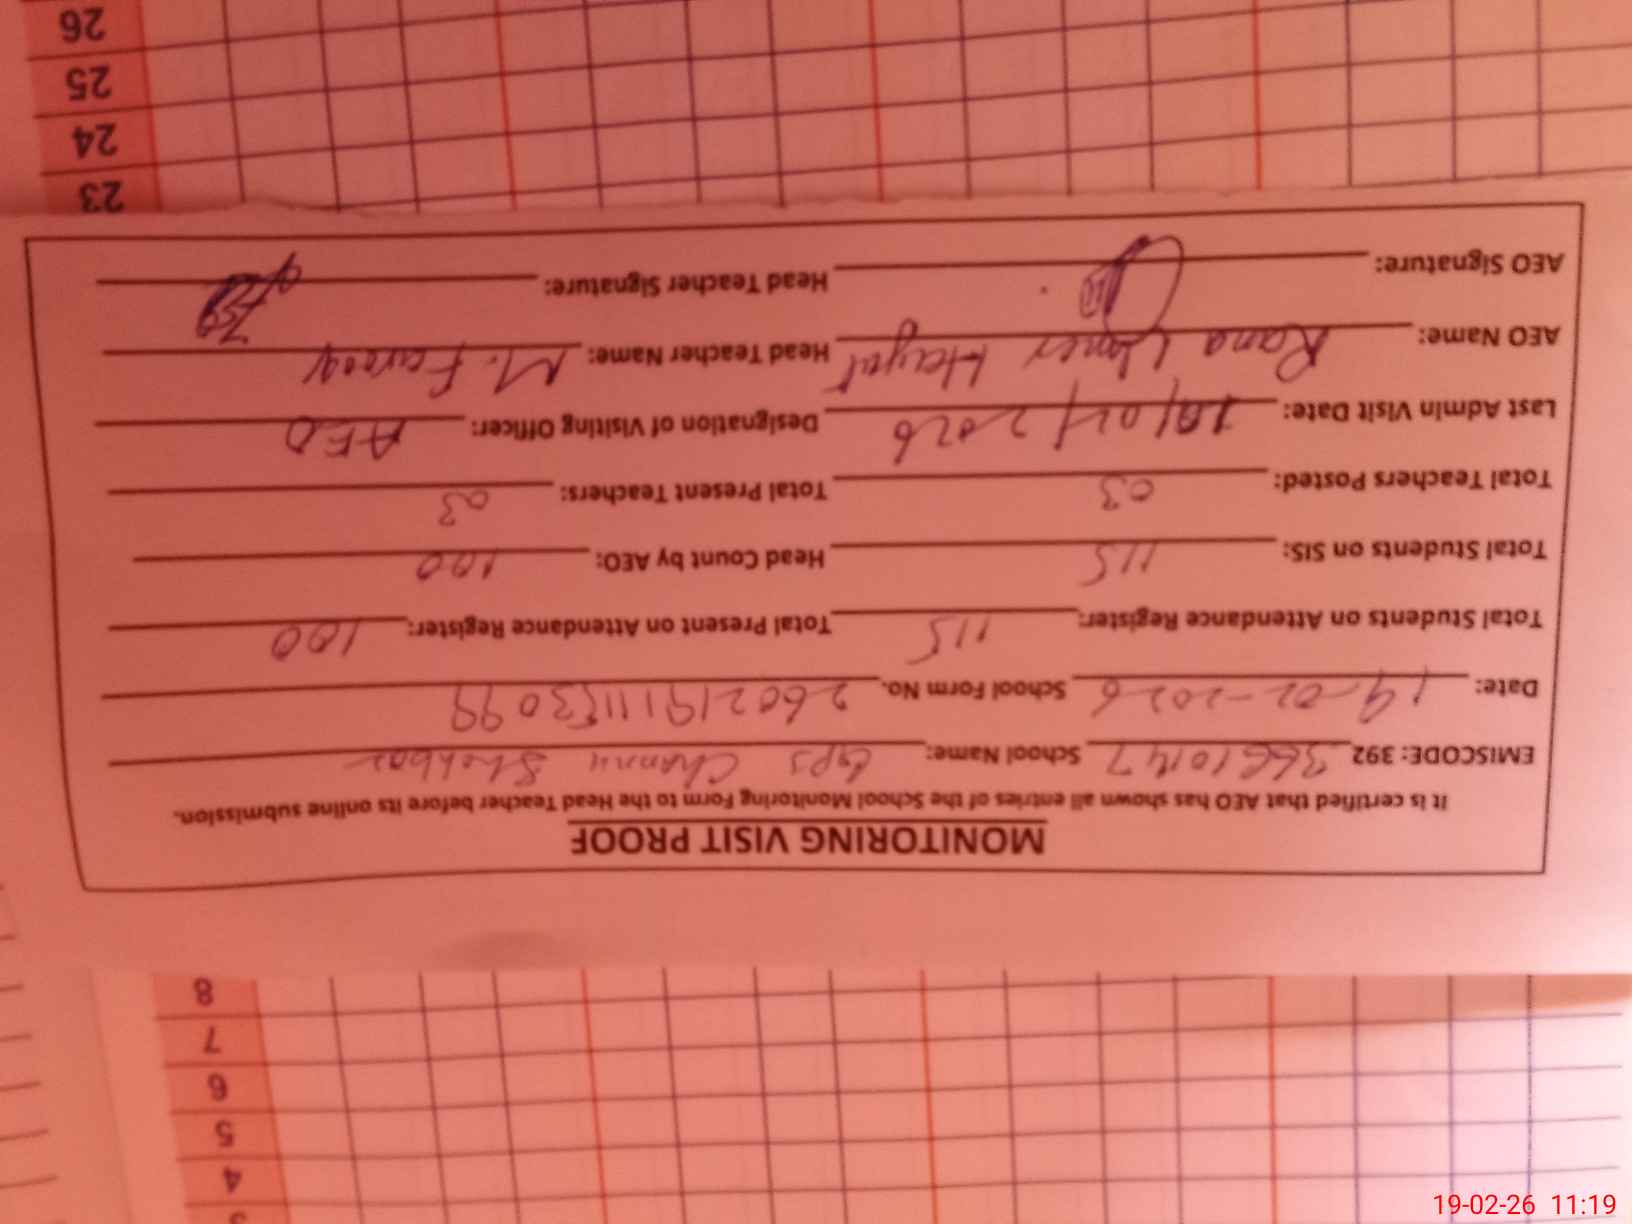 MONITORING VISIT PROOF
It is certified that AEO has shown all entries of the School Monitoring Form to the Head Teacher before its online submission.
EMISCODE: 392 School Name: GPS Channu
Date: 19-02-2026 School Form No.
Total Students on Attendance Register: 115 Total Present on Attendance Register: 100
Total Students on SIS: 115 Head Count by AEO: 100
Total Teachers Posted: 03 Total Present Teachers: 03
Last Admin Visit Date: Designation of Visiting Officer: AEO
AEO Name: Rana Umer Hayat Head Teacher Name: M. Farooq
AEO Signature: Head Teacher Signature:
3
4
5
6
7
8
23
24
25
26
19-02-26 11:19